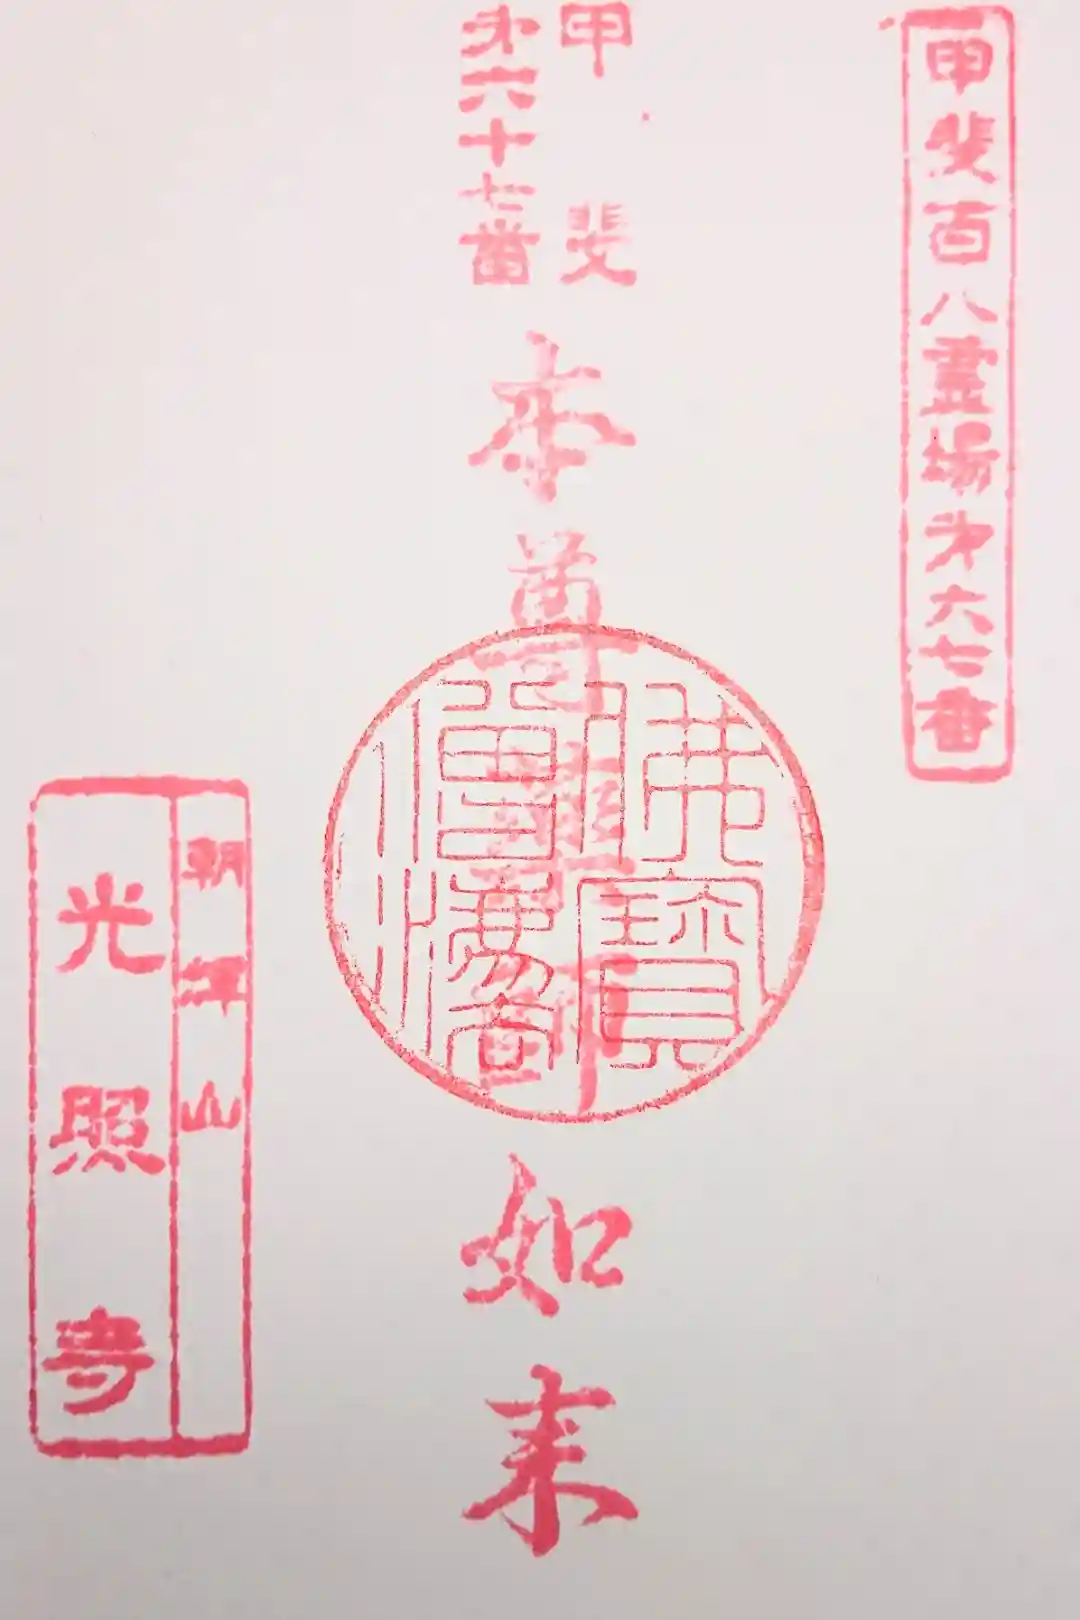 甲斐百八霊場第六七番
甲斐
第六十七番
本尊薬師如来
佛寶
僧
朝輝山
光照寺